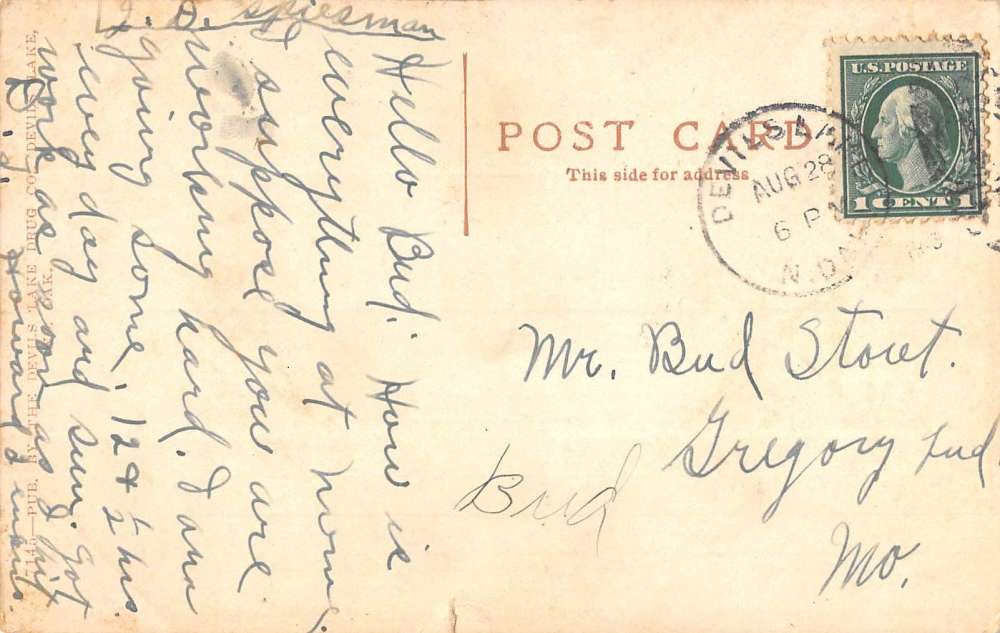 J. D. Spiesman
Hello Bud. How is
everything at home.
I suppose you are
working hard. I am
going some, 12 & ½ hrs
every day and sun. got
work as soon as I
POST CARD
This side for address
U.S. POSTAGE
1 CENT 1
DEVILS LAKE
AUG 28
6 PM
N. DAK.
Mr. Bud Storet.
Gregory Lnd
Mo.
Bud
1145—PUB. BY THE DEVILS LAKE DRUG CO., DEVILS LAKE,
N. DAK.